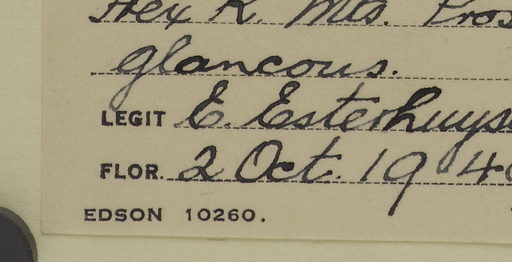 Hex R. Mts. Pros
glancous.
LEGIT E. Esterhuys
FLOR. 2 Oct. 194
EDSON 10260.